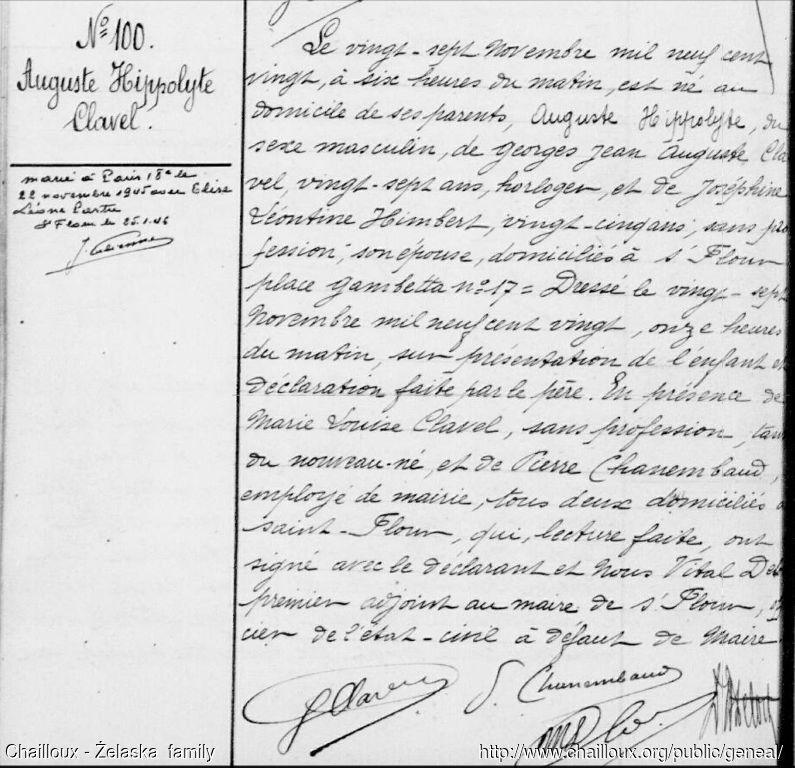 Nº 100.
Auguste Hippolyte
Clavel.
marié à Paris 18e le
22 novembre 1945 avec Elise
Léone
St Flour le 25.1.46
Le vingt-sept Novembre mil neuf cent
vingt, à six heures du matin, est né au
domicile de ses parents, Auguste Hippolyte, du
sexe masculin, de Georges Jean Auguste Cla
vel, vingt-sept ans, horloger, et de Joséphine
Léontine Himbert, vingt-cinq ans, sans pro
fession, son épouse, domiciliés à St Flour
place Gambetta nº 17 = Dressé le vingt-sept
Novembre mil neuf cent vingt, onze heures
du matin, sur présentation de l'enfant et
déclaration faite par le père. En présence de
Marie Louise Clavel, sans profession, tan
du nouveau-né, et de Pierre Chanembaud,
employé de mairie, tous deux domiciliés à
Saint-Flour, qui, lecture faite, ont
signé avec le déclarant et Nous Vital Del
premier adjoint au maire de St Flour, offi
cier de l'état-civil à défaut de Maire
G Clavel P. Chanembaud
Chailloux - Żelaska family
http://www.chailloux.org/public/geneal/